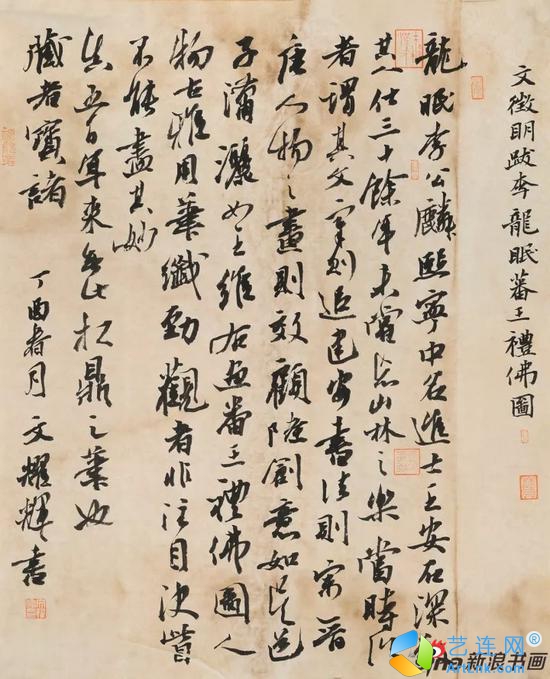 文徵明跋李龍眠蕃王禮佛圖
龍眠李公麟熙寧中名進士王安石深
其入仕三十餘年未嘗忘山林之樂當時
者謂其文章則追建安書法則宗晉
唐人物之畫則效顧陸創意如吳道
子瀟灑如王維右番王禮佛圖人
物古雅用筆纖勁觀者非注目決
不能盡其妙
五百年來無此扛鼎之筆也
藏者寶諸
丁酉春月文耀輝書
艺连网
新浪书画